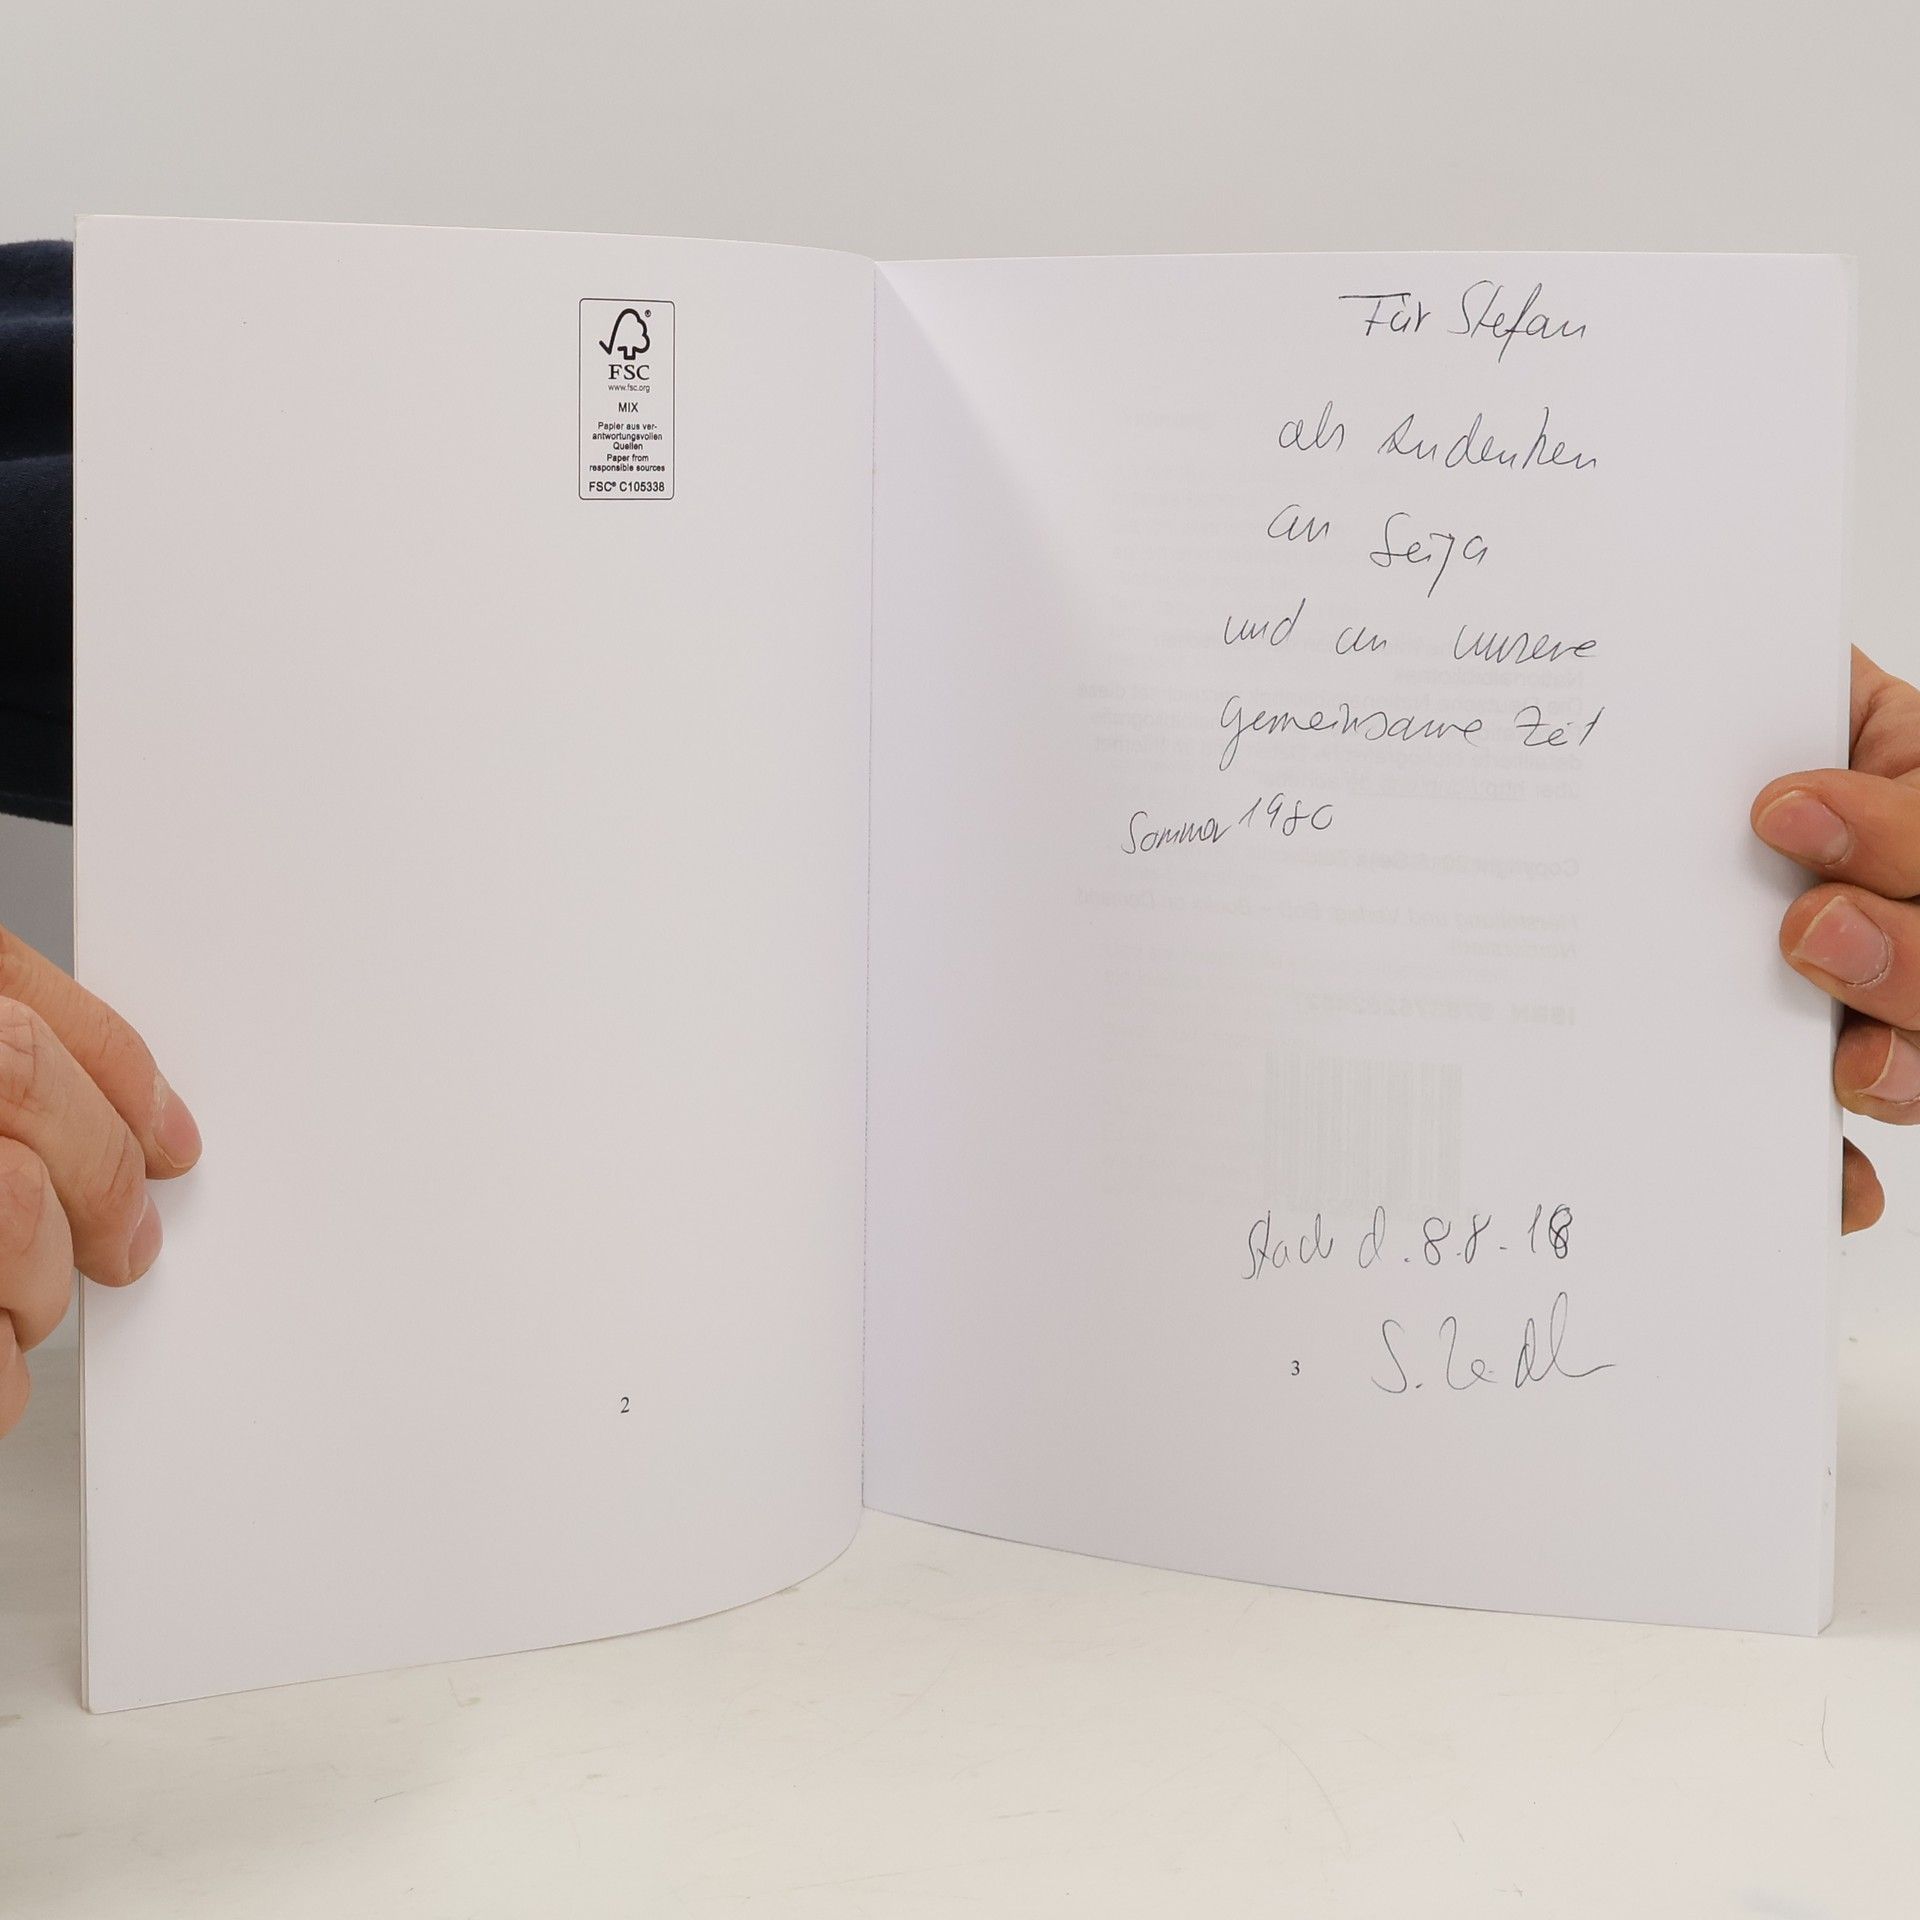 FSC®
www.fsc.org
MIX
Papier aus ver-
antwortungsvollen
Quellen
Paper from
responsible sources
FSC® C105338
2
Für Stefan
als Andenken
an Seija
und an unsere
gemeinsame Zeit
Sommer 1980
d. 8.8.18
3 S.